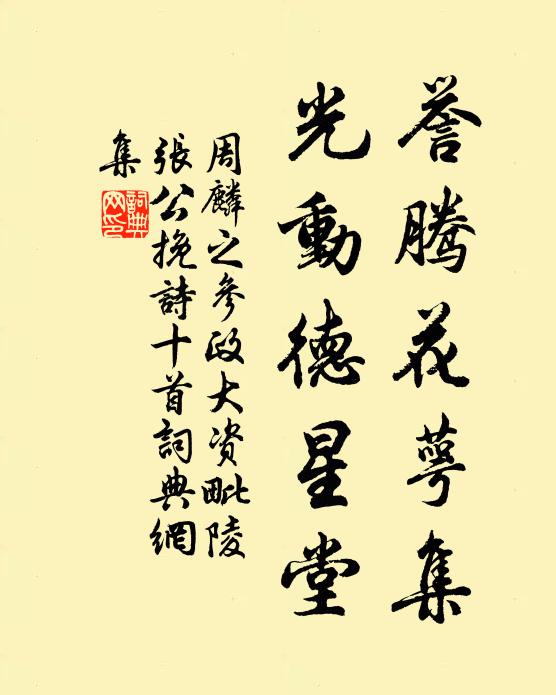 誉腾花萼集
光動德星堂
周麟之參政大资毗陵
張公挽詩十首詞典網
集
詞典
网印